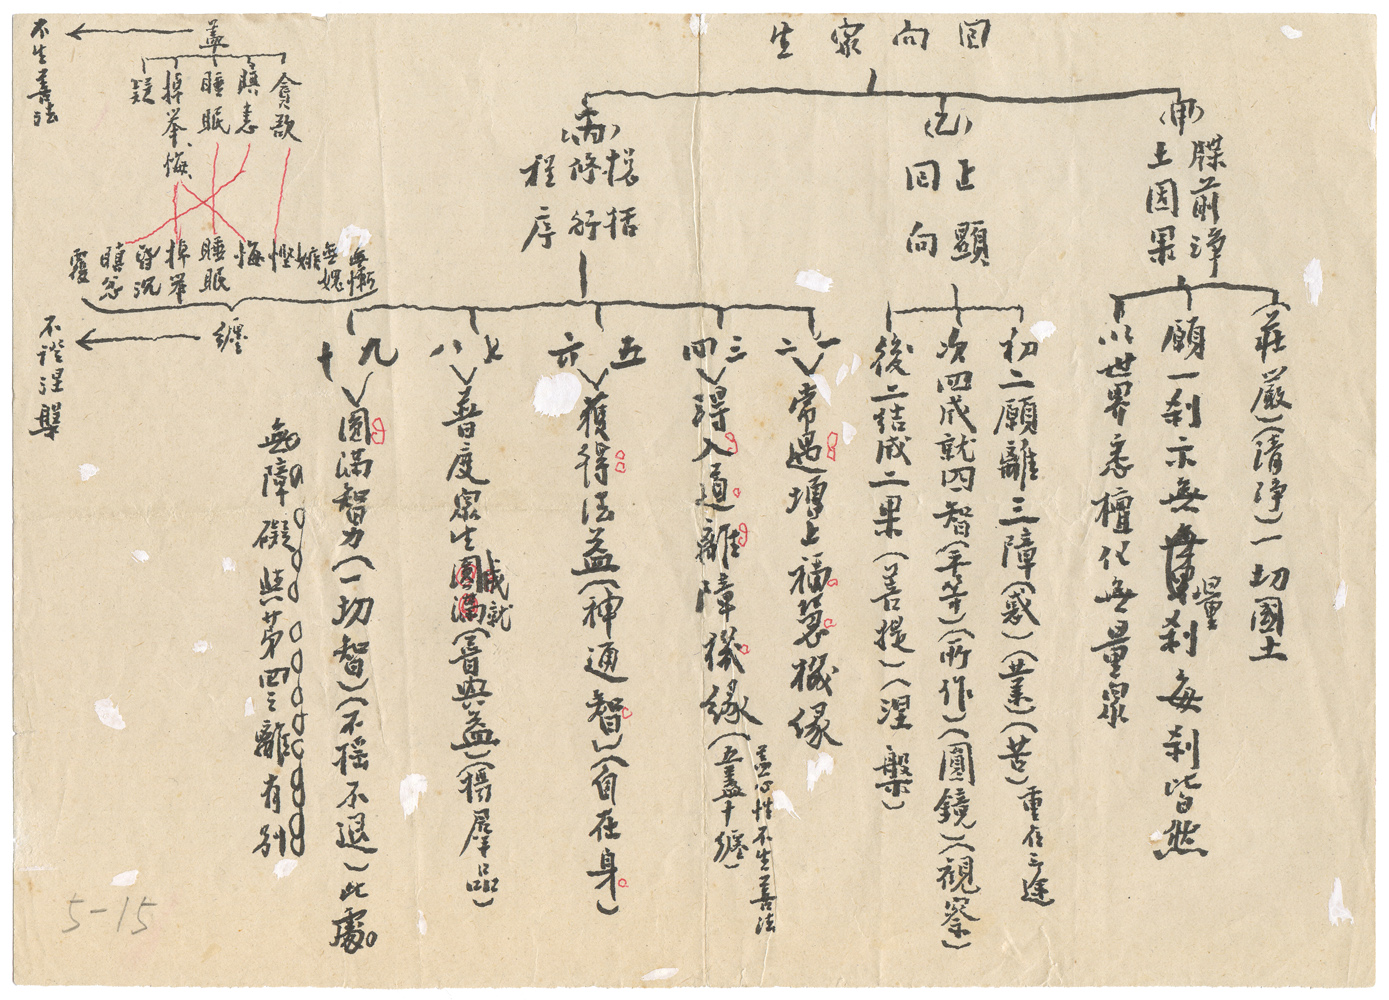 回向眾生
(甲)
牒前淨
土因果
(莊嚴)(清淨)一切國土
願一剎示無量剎每剎皆然
以世界悉檀化無量眾
(乙)
正顯
回向
初二願離三障(惑)(業)(苦)重在三途
次四成就四智(平等)(所作)(圓鏡)(觀察)
後二結成二果(菩提)(涅槃)
(丙)
總括
修行
程序
一二
常遇增上福慧機緣
三四
得入道離障機緣(五蓋十纏)
蓋心性不生善法
五六
獲得法益(神通智)(自在身)
七八
普度眾生圓滿(普與益)(獨羣品)
成就
九十
圓滿智力(一切智)(不搖不退)此處
無障礙與第四三離有別
蓋
不生善法
貪欲
瞋恚
睡眠
掉舉、悔
疑
無慚
無媿
嫉
慳
悔
睡眠
掉舉
昏沉
瞋忿
覆
纏
不證涅槃
5-15